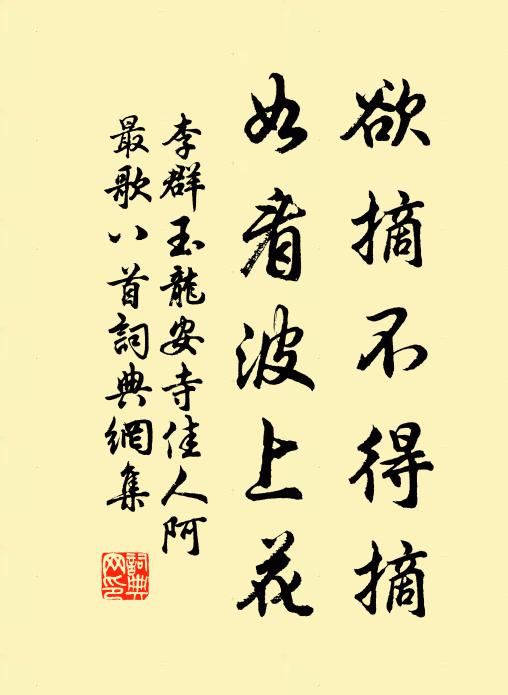 欲摘不得摘
如看波上花
李群玉龍安寺佳人阿
最歌八首詞典網集
詞典
网印